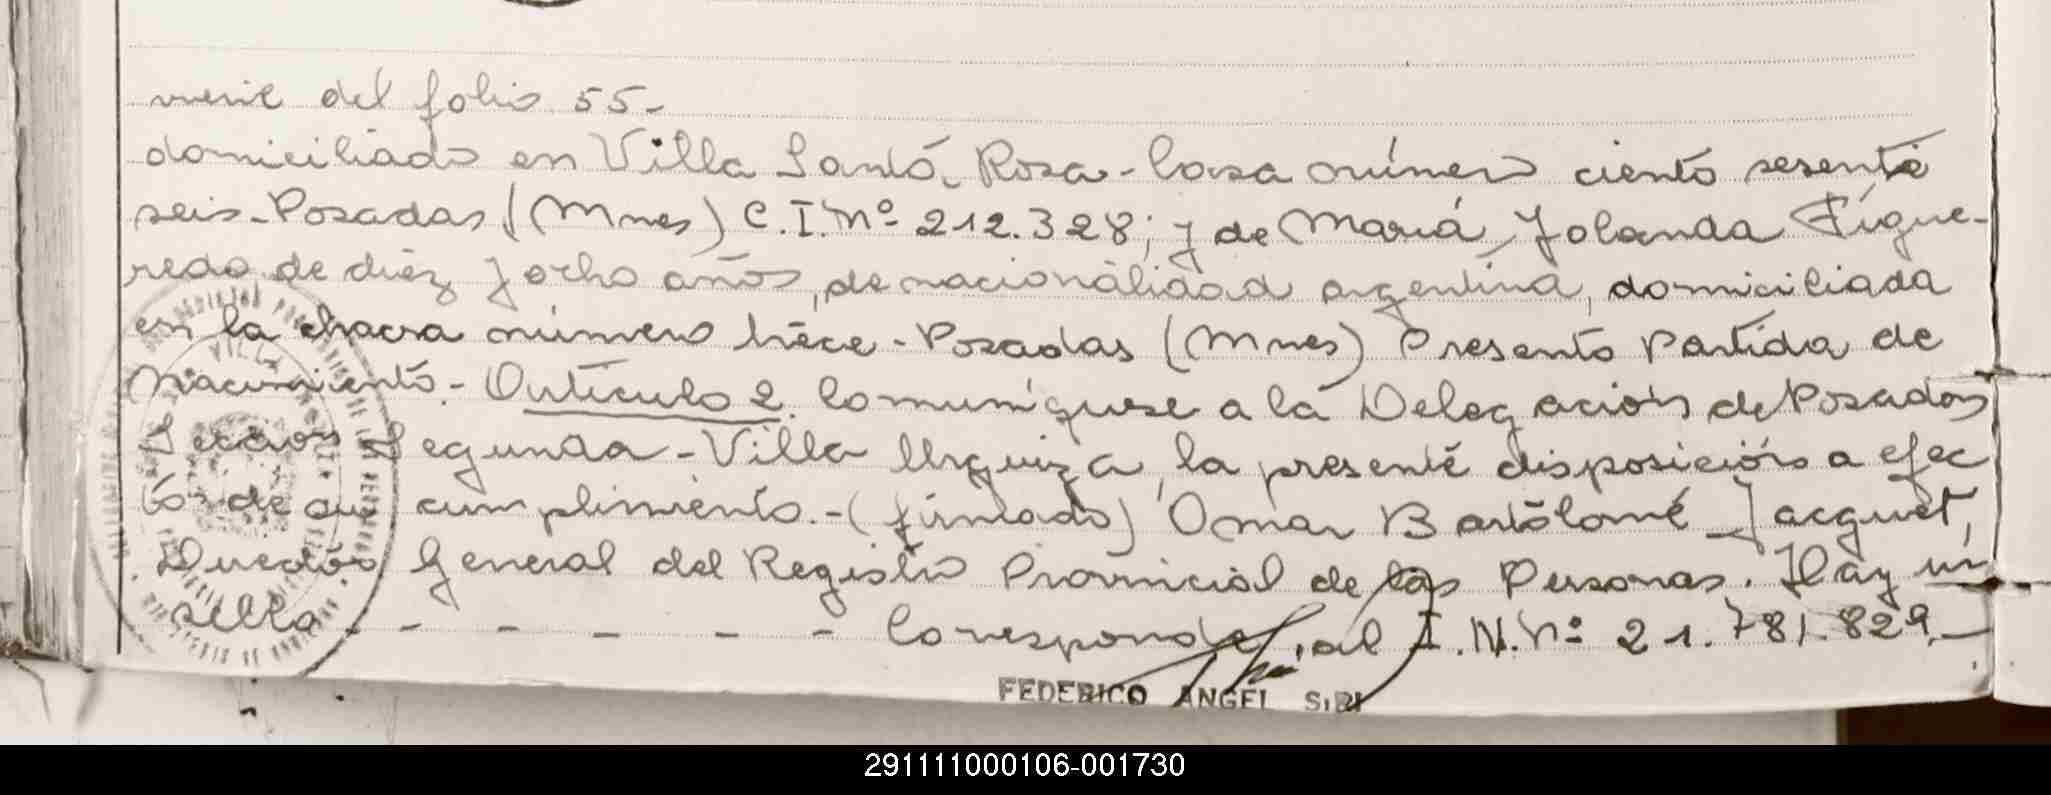 viene del folio 55-
domiciliado en Villa Santa Rosa - Casa número ciento sesenta
seis - Posadas (Mnes) C.I.Nº 212.328; y de María Yolanda Figue-
redo de diez y ocho años, de nacionalidad argentina, domiciliada
en la chacra número trece - Posadas (Mnes) Presentó Partida de
Nacimiento. - Artículo 2. Comuníquese a la Delegación de Posadas
Sección Segunda - Villa Urquiza, la presente disposición a efec
tos de su cumplimiento. - (firmado) Omar Bartolomé Jacquet,
Director General del Registro Provincial de las Personas. Hay un
sello - - - - - - Corresponde, al I.N.Nº 21.781.829.-
FEDERICO ANGEL SIRI
291111000106-001730